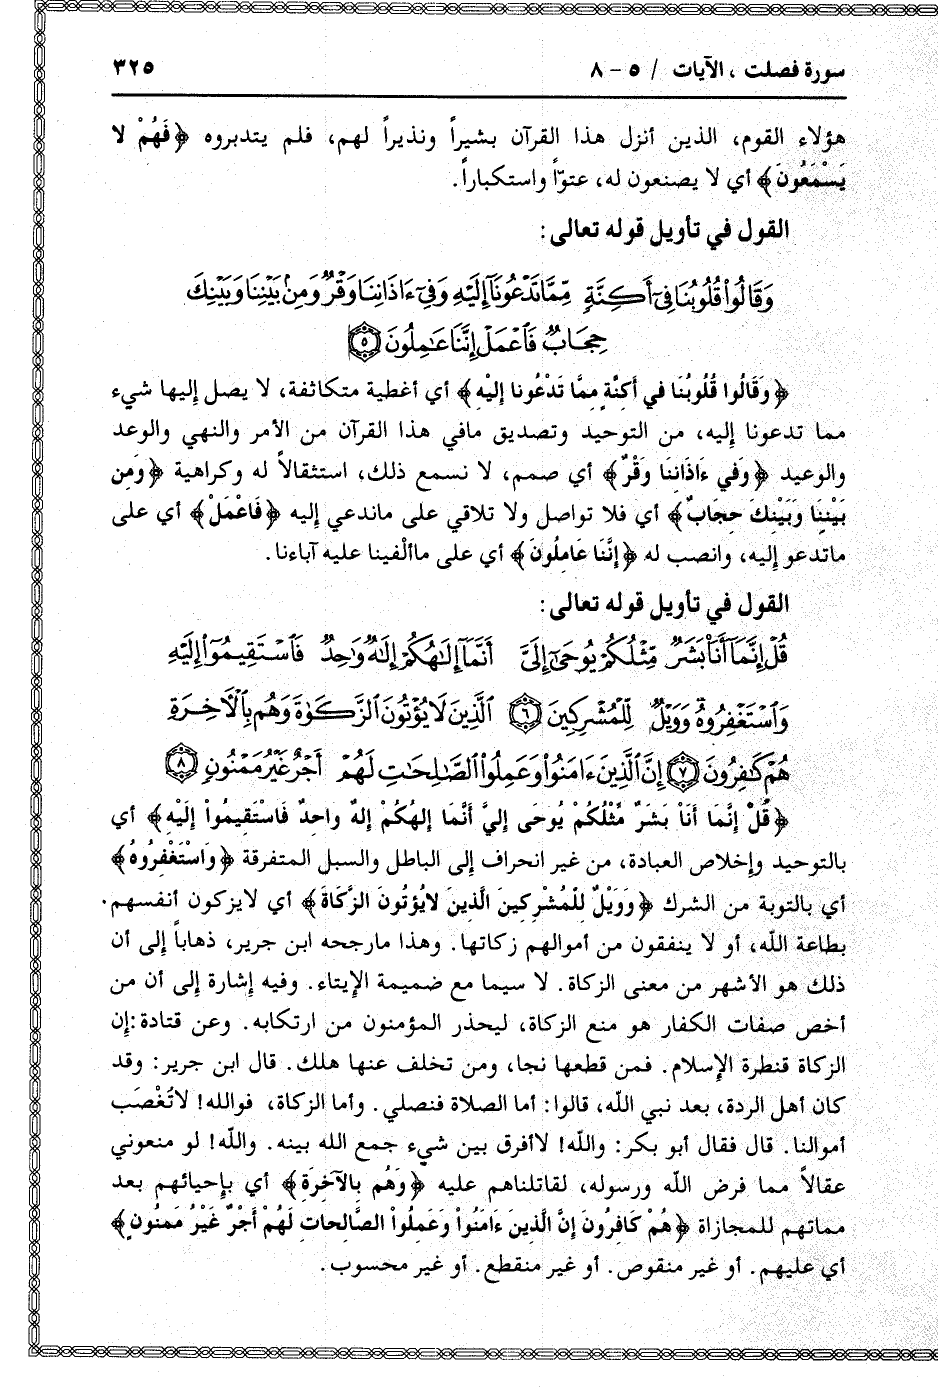 سورة فصلت ، الآيات / ٥ - ٨ ٣٢٥
هؤلاء القوم، الذين أنزل هذا القرآن بشيراً ونذيراً لهم، فلم يتدبروه ﴿فَهُمْ لا
يَسْمَعُونَ﴾ أي لا يصنعون له، عتوّاً واستكباراً.
القول في تأويل قوله تعالى:
وَقَالُوا۟ قُلُوبُنَا فِىٓ أَكِنَّةٍ مِّمَّا تَدْعُونَآ إِلَيْهِ وَفِىٓ ءَاذَانِنَا وَقْرٌ وَمِنۢ بَيْنِنَا وَبَيْنِكَ
حِجَابٌ فَٱعْمَلْ إِنَّنَا عَـٰمِلُونَ ٥
﴿وَقَالُوا قُلُوبُنَا في أَكنَّةٍ ممَّا تَدْعُونا إلَيْهِ﴾ أي أغطية متكاثفة، لا يصل إليها شيء
مما تدعونا إليه، من التوحيد وتصديق مافي هذا القرآن من الأمر والنهي والوعد
والوعيد ﴿وَفي ءَاذَاننَا وَقْرٌ﴾ أي صمم، لا نسمع ذلك، استثقالاً له وكراهية ﴿وَمن
بَيْننَا وَبَيْنكَ حجَابٌ﴾ أي فلا تواصل ولا تلاقي على ماندعي إليه ﴿فَاعْمَلْ﴾ أي على
ماتدعو إليه، وانصب له ﴿إنَّنَا عَاملُونَ﴾ أي على ماألفينا عليه آباءنا.
القول في تأويل قوله تعالى:
قُلْ إِنَّمَآ أَنَا۠ بَشَرٌ مِّثْلُكُمْ يُوحَىٰٓ إِلَىَّ أَنَّمَآ إِلَـٰهُكُمْ إِلَـٰهٌ وَٰحِدٌ فَٱسْتَقِيمُوٓا۟ إِلَيْهِ
وَٱسْتَغْفِرُوهُ وَوَيْلٌ لِّلْمُشْرِكِينَ ٦ ٱلَّذِينَ لَا يُؤْتُونَ ٱلزَّكَوٰةَ وَهُم بِٱلْـَٔاخِرَةِ
هُمْ كَـٰفِرُونَ ٧ إِنَّ ٱلَّذِينَ ءَامَنُوا۟ وَعَمِلُوا۟ ٱلصَّـٰلِحَـٰتِ لَهُمْ أَجْرٌ غَيْرُ مَمْنُونٍ ٨
﴿قُلْ إنَّمَا أنَا بَشَرٌ مثْلُكُمْ يُوحَى إليَّ أَنَّمَا إلهُكُمْ إلهٌ واحدٌ فَاسْتَقيمُوا إلَيْه﴾ أي
بالتوحيد وإخلاص العبادة، من غير انحراف إلى الباطل والسبل المتفرقة ﴿وَاسْتَغْفرُوهُ﴾
أي بالتوبة من الشرك ﴿وَوَيْلٌ للْمُشْركينَ الَّذينَ لايُؤتُونَ الزَّكَاةَ﴾ أي لايزكون أنفسهم.
بطاعة اللّه، أو لا ينفقون من أموالهم زكاتها. وهذا مارجحه ابن جرير، ذهاباً إلى أن
ذلك هو الأشهر من معنى الزكاة. لا سيما مع ضميمة الإيتاء. وفيه إشارة إلى أن من
أخص صفات الكفار هو منع الزكاة، ليحذر المؤمنون من ارتكابه. وعن قتادة:إن
الزكاة قنطرة الإسلام. فمن قطعها نجا، ومن تخلف عنها هلك. قال ابن جرير: وقد
كان أهل الردة، بعد نبي اللّه، قالوا: أما الصلاة فنصلي. وأما الزكاة، فوالله! لاتُغْصَب
أموالنا. قال فقال أبو بكر: والله! لاأفرق بين شيء جمع الله بينه. واللّه! لو منعوني
عقالاً مما فرض اللّه ورسوله، لقاتلناهم عليه ﴿وَهُم بالآخرَة﴾ أي بإحيائهم بعد
مماتهم للمجازاة ﴿هُمْ كَافرُونَ إنَّ الَّذينَ ءَامَنُوا وَعَملُوا الصَّالحات لَهُمْ أَجْرٌ غَيْرُ مَمنُون﴾
أي عليهم. أو غير منقوص. أو غير منقطع. أو غير محسوب.